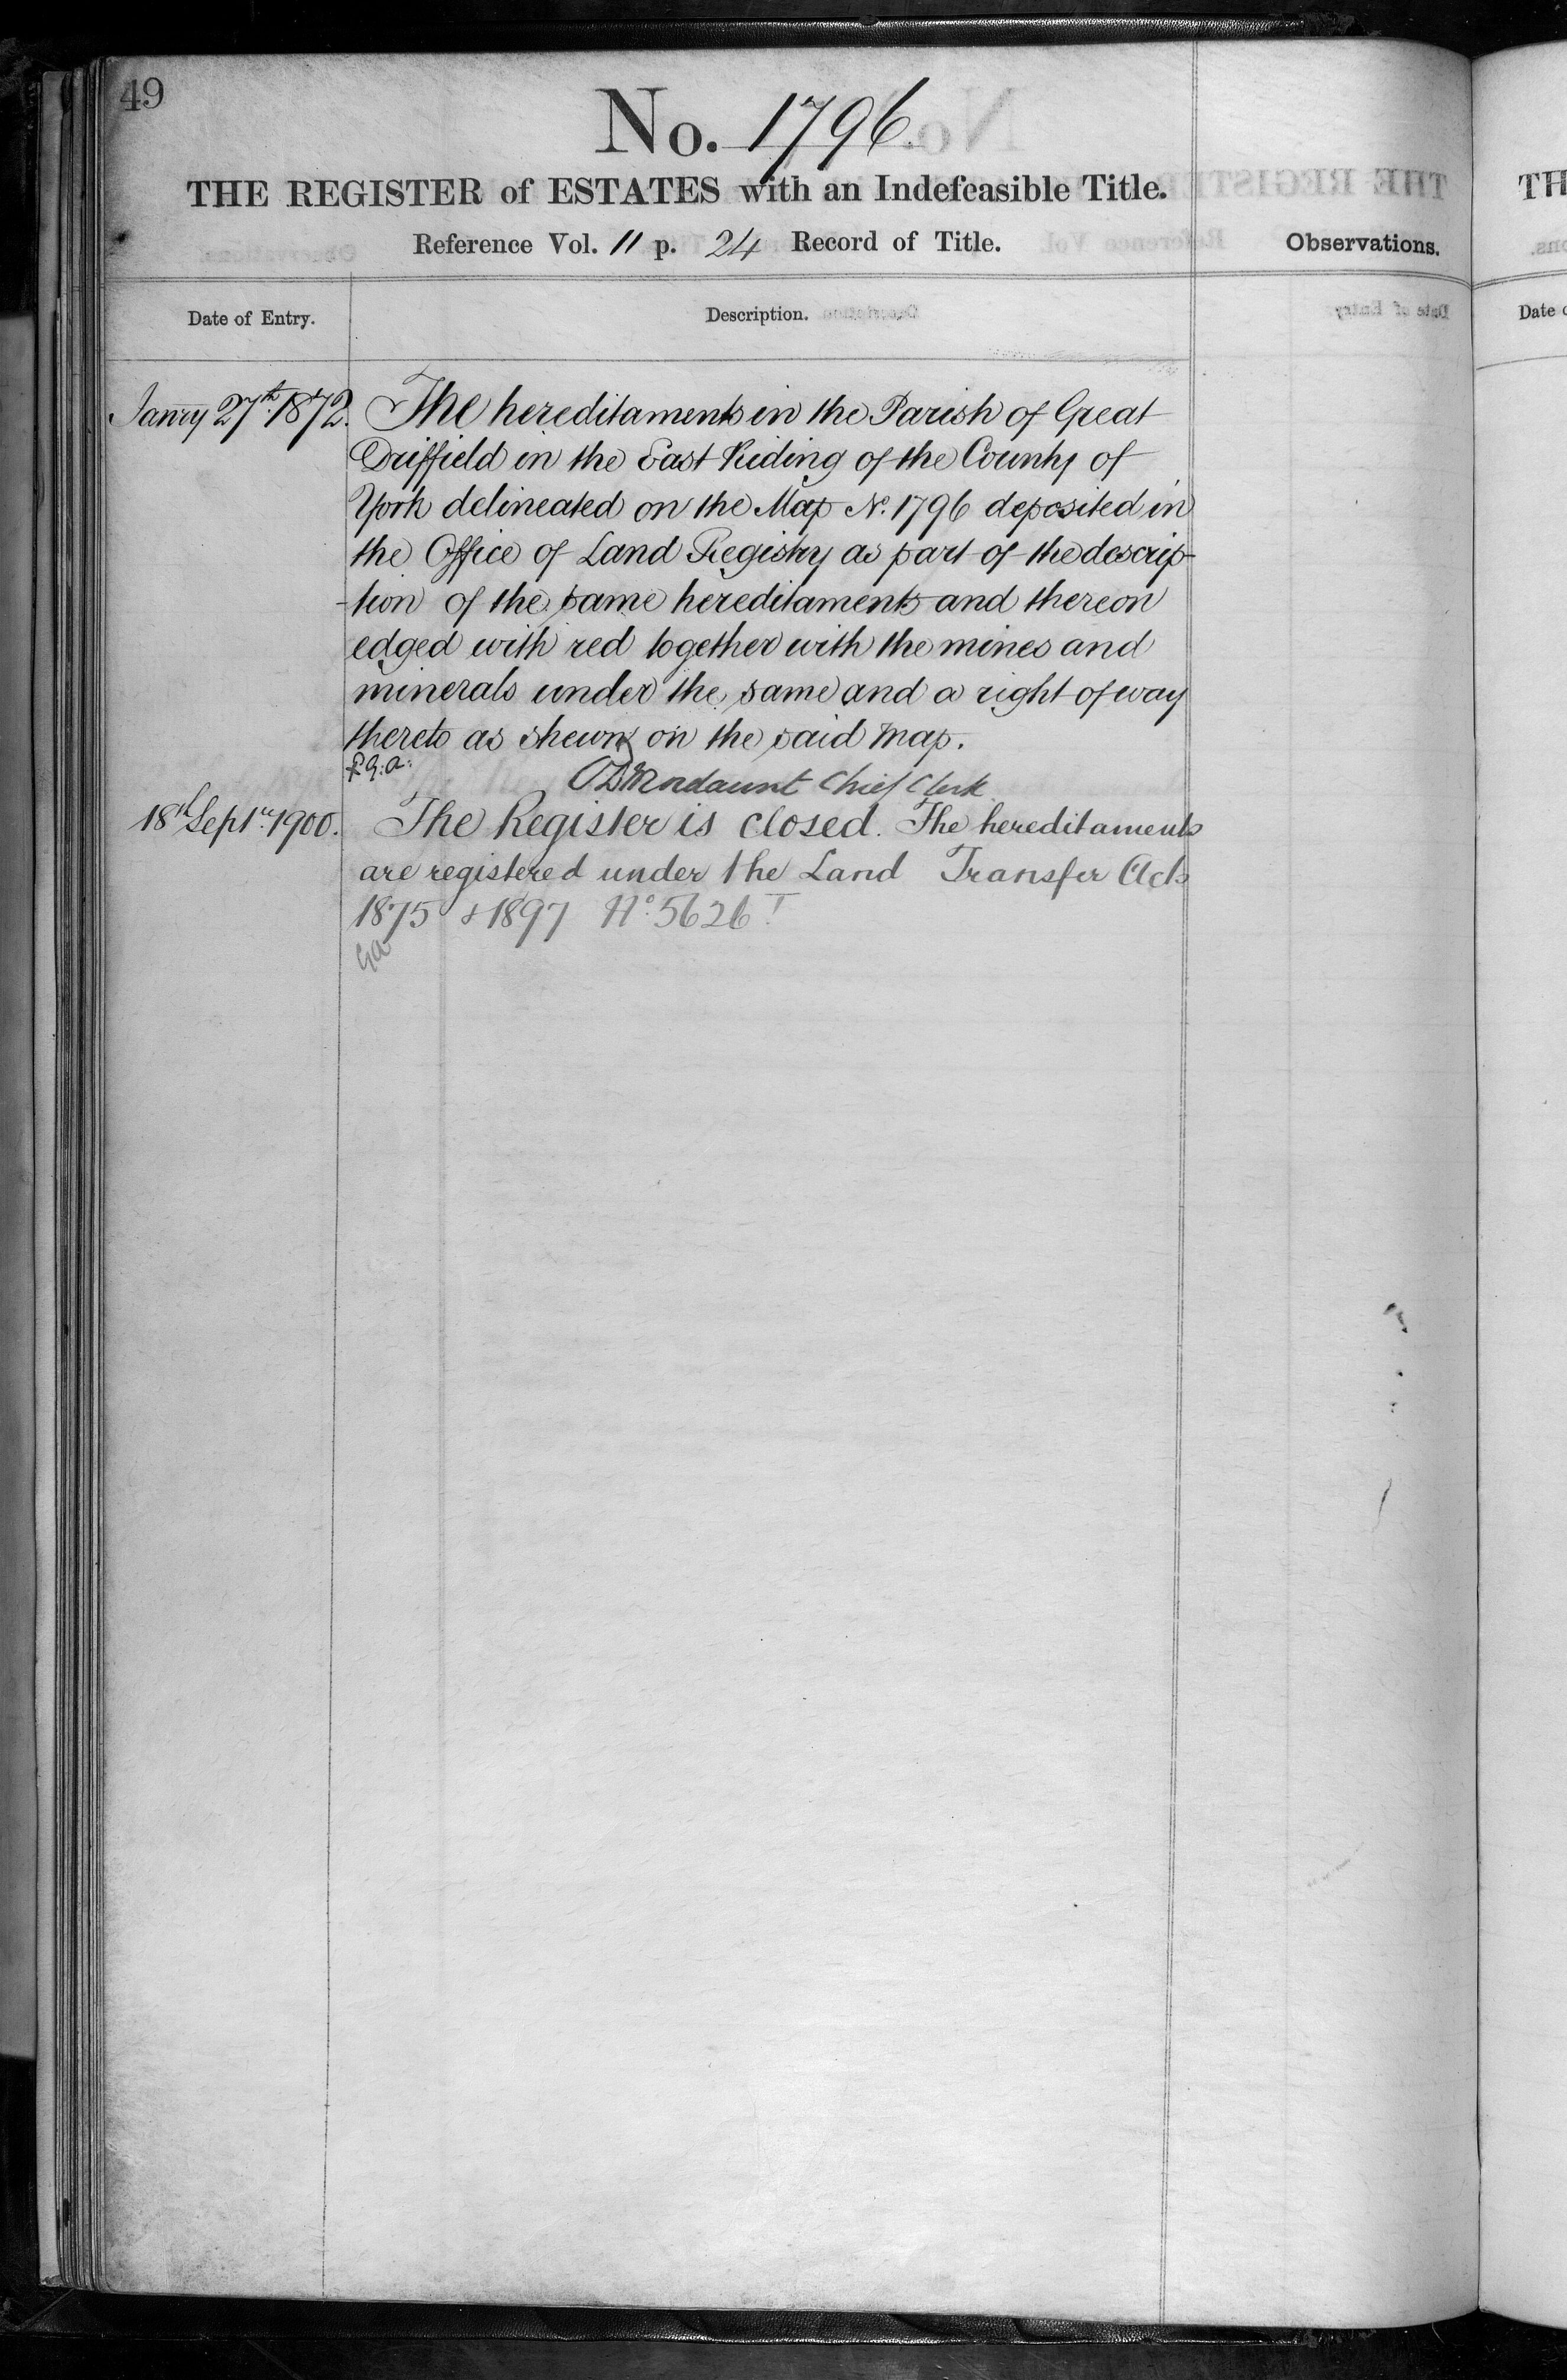 49
No. 1796.
THE REGISTER of ESTATES with an Indefeasible Title.
Reference Vol. 11 p. 24 Record of Title.
Observations.
Date of Entry.
Description.
Janry 27th 1872.
The hereditaments in the Parish of Great
Driffield in the East Riding of the County of
York delineated on the Map No. 1796 deposited in
the Office of Land Registry as part of the descrip-
-tion of the same hereditaments and thereon
edged with red together with the mines and
minerals under the same and a right of way
thereto as shewn on the said Map.
Mordaunt Chief Clerk
18th Septr. 1900.
The Register is closed. The hereditaments
are registered under the Land Transfer Acts
1875 & 1897 No. 5626
GA
TH
Date